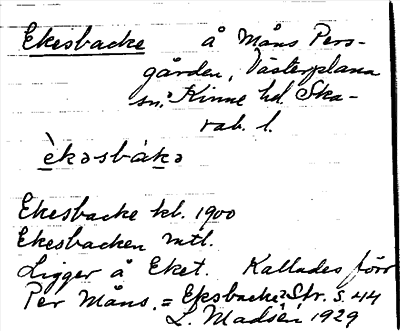 Ekesbacke å Måns Pers-
gården, Västerplana
sn. Kinne hd. Ska-
rab. l.
è̱kəsbàḵə
Ekesbacke kb. 1900
Ekesbacken mtl.
Ligger å Eket. Kallades förr
Per Måns. = Eksbacke? Str. S. 44
L. Madsén 1929